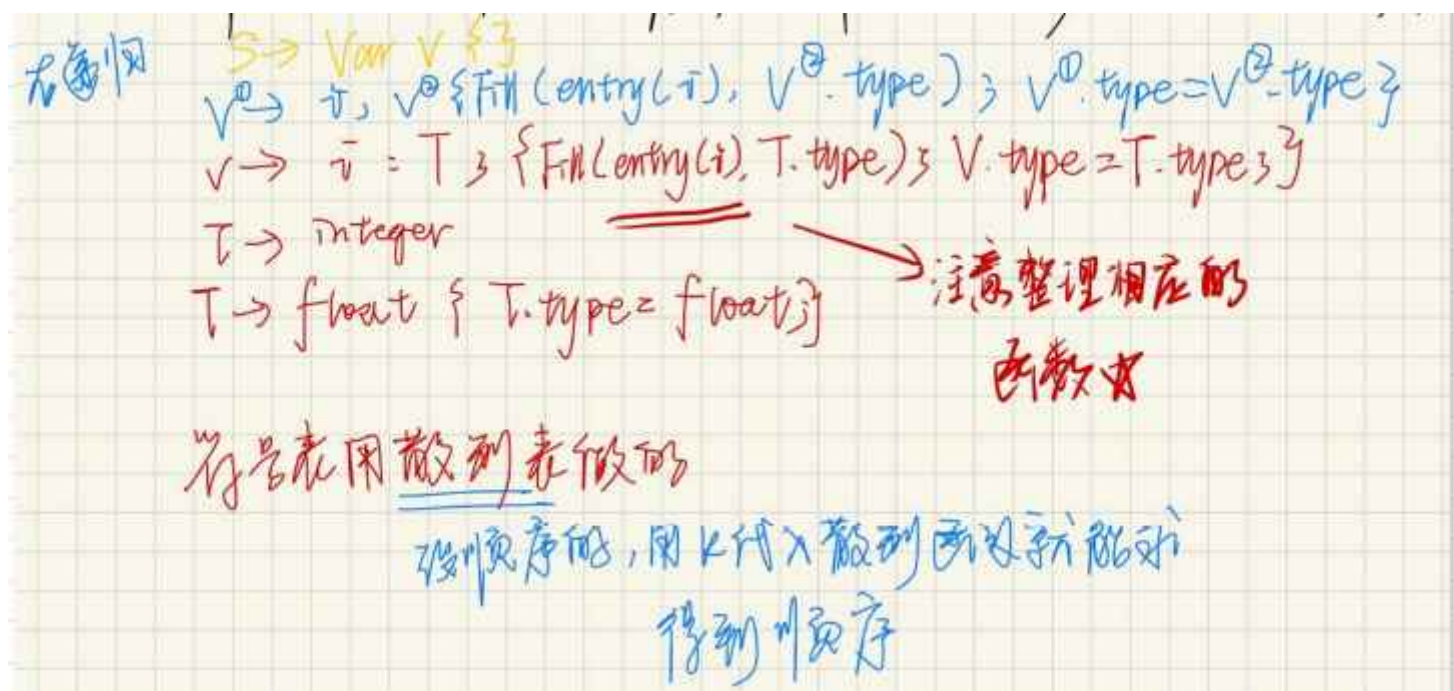 右递归 S → Var V { }
V① → i, V② {Fill(entry(i), V②.type); V①.type=V②.type}
V → i : T ; {Fill(entry(i), T.type); V.type=T.type;}
T → integer
T → float { T.type = float;}
注意整理相应的
函数
符号表用散列表做的
没顺序的,用K代入散列函数就能求
得到顺序